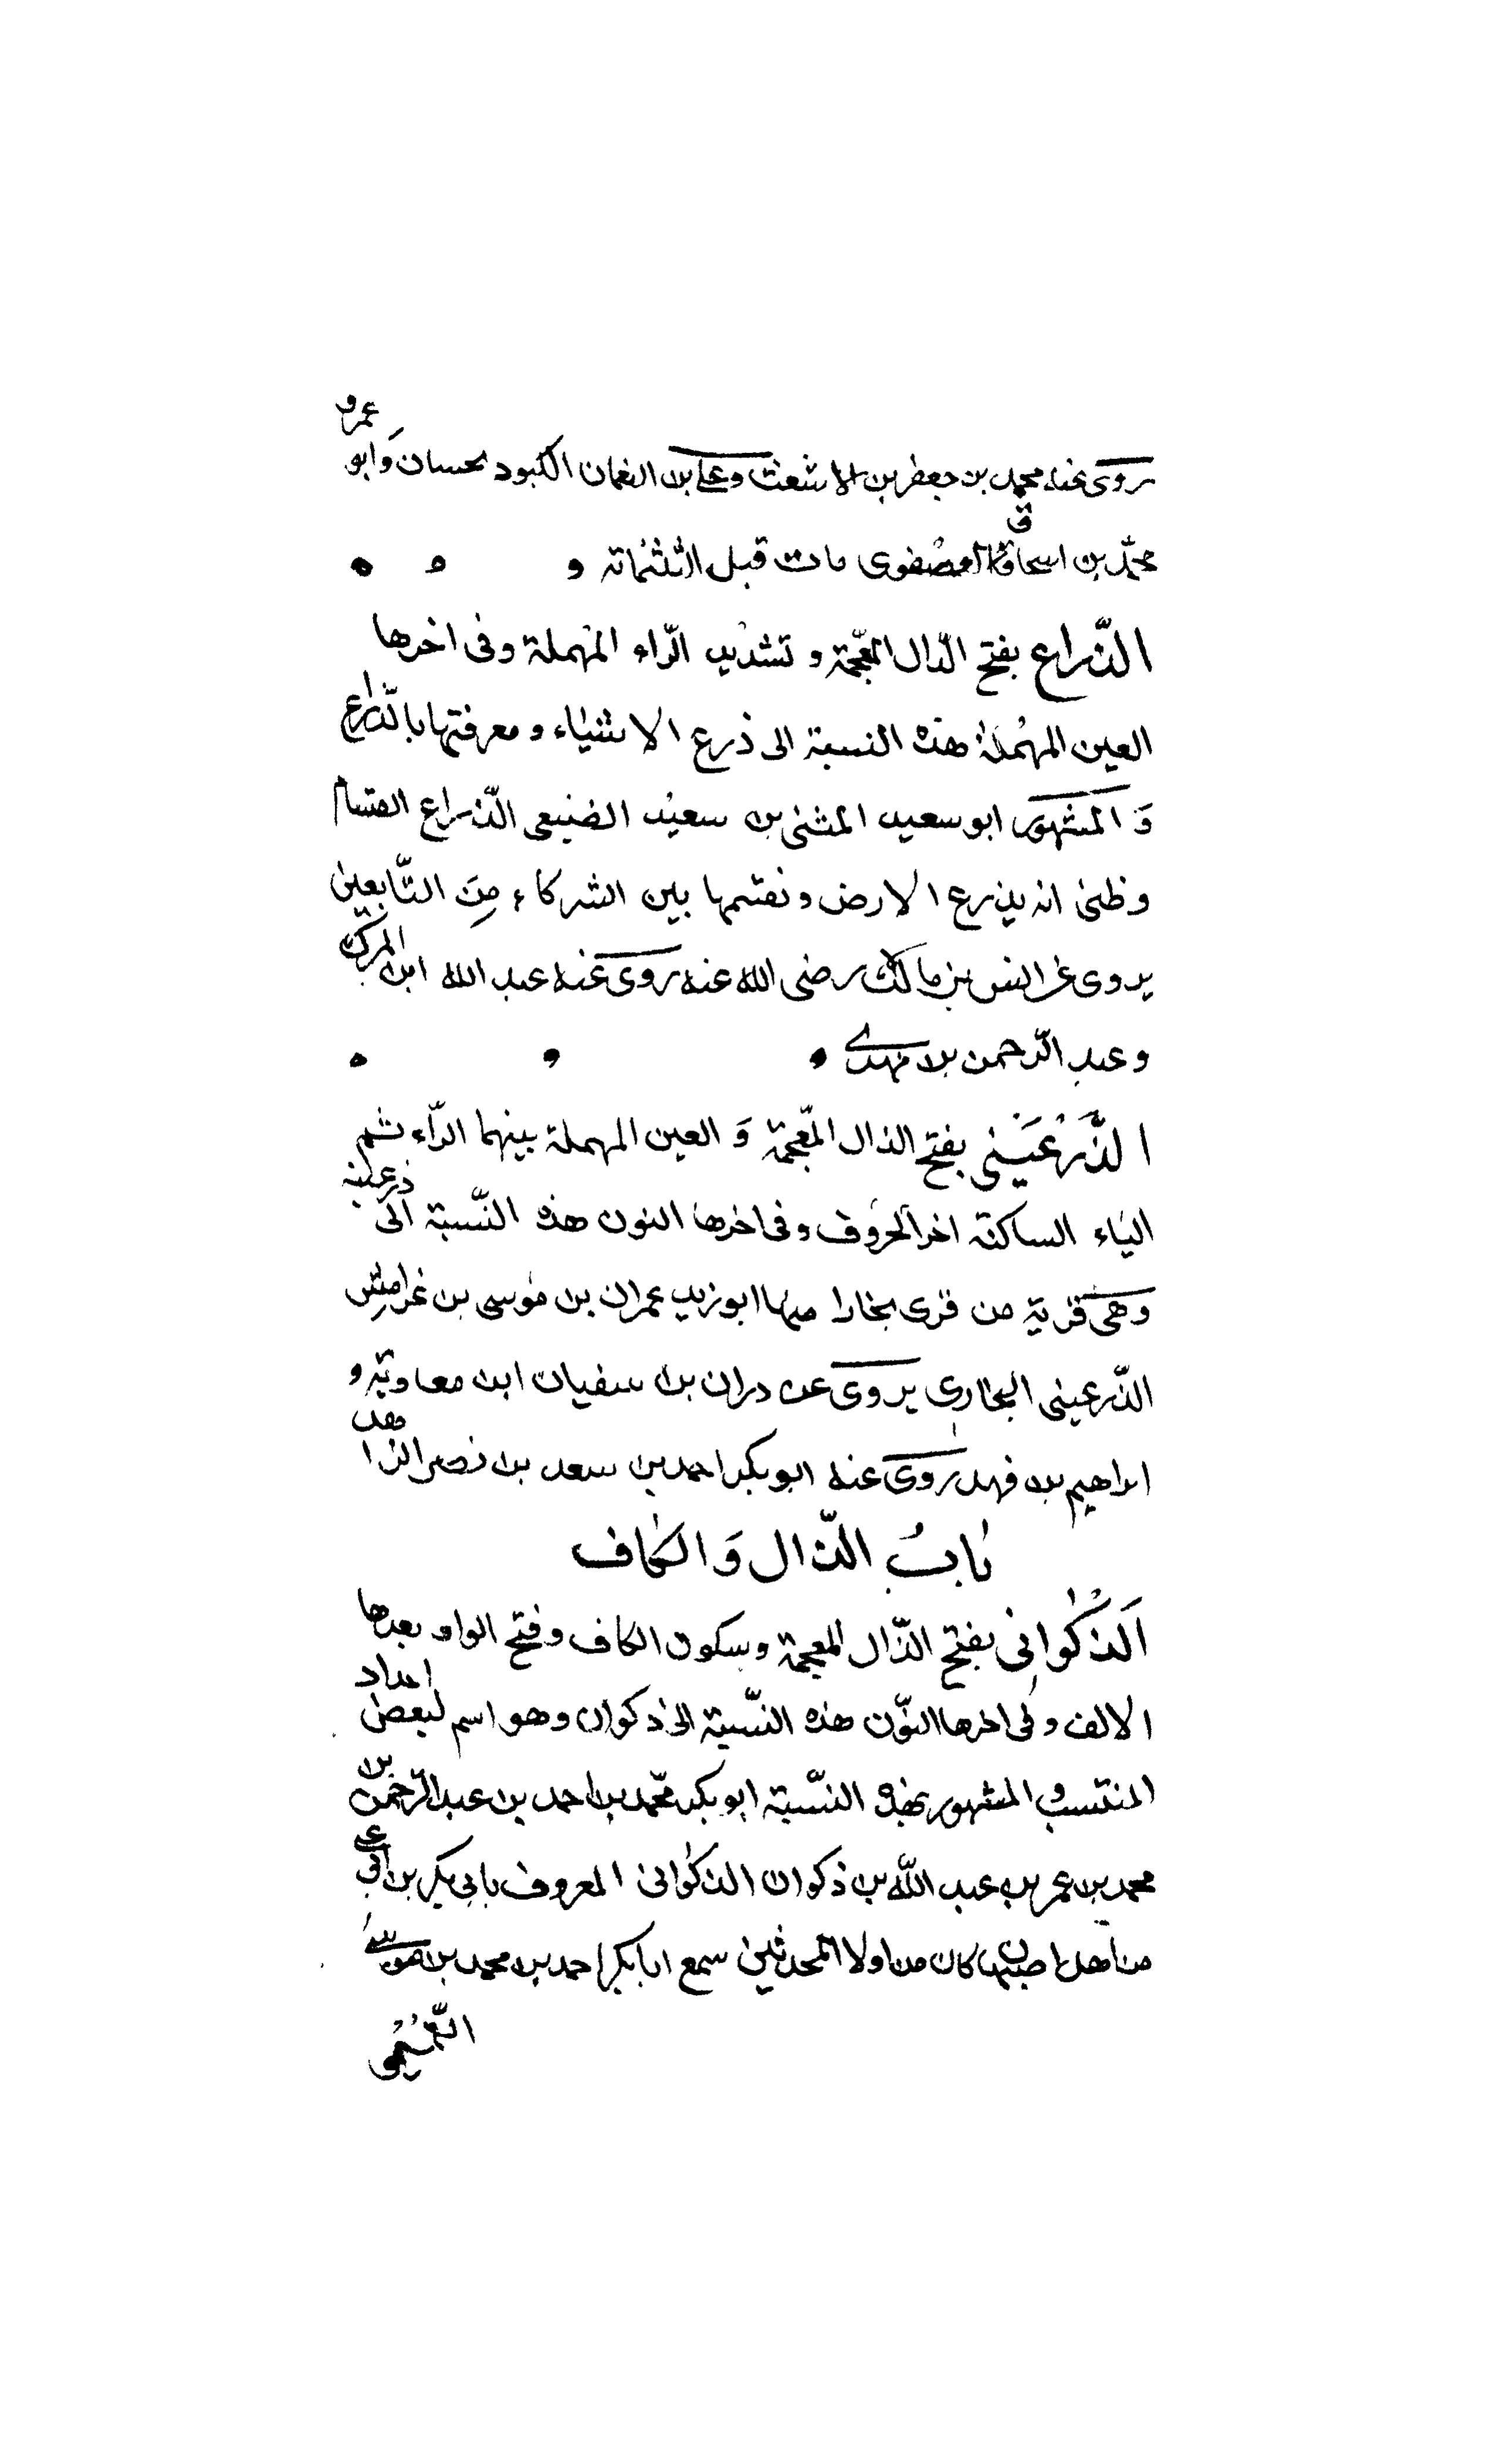 روى عنه محمد بن جعفر بن الاشعث وعلى بن النعمان الكبود بحسان وَابو عمرو
محمّد بن اسحاق العصفوى مات قبل الثلثمائة
الذّراع بفتح الذال المعجّمة وتشديد الرّاء المهملة وفى اخرها
العين المهملة هذه النسبة الى ذرع الاشياء ومعرفتها بالذّراع
وَالمشهور ابو سعيد المثنى بن سعيد الضبيعى الذّراع القسام
وظنى انه يذرع الارض ونقسمها بين الشركاء مِنَ التّابعين
يروى عن انس بن مالك رضى الله عنه روى عنه عبد الله ابن المبرك
وعبد الرّحمن بن مهدى
الذَّرْعَيْنى بفتح الذال المعّجمة وَالعين المهملة بينهما الرّاء ثم
الياء الساكنة اخر الحروف وفى اخرها النون هذه النّسبة الى ذرعينه
وهى قرية من قرى بخارا منها ابو زيد عمران بن موسى بن غرامش
الذّرعينى البخارى يروى عن دران بن سفيان ابن معاوية و
ابراهيم بن فهد روى عنه ابو بكر احمد بن سعد بن نصر الزاهد
بابُ الذّال وَالكاف
اَلذكْوانى بفتح الذّال المعجمة وسكون الكاف وفتح الواو بعدها
الالف وفى اخرها النوّن هذه النّسبة الى ذكوان وهو اسم لبعض اجداد
المنتسب والمشهور بهذه النسّبة ابو بكر محمّد بن احمد بن عبد الرّحمن بن
محمد بن عمر بن عبد اللّه بن ذكوان الذكوانى المعروف بابى بكر بن ابى على
من اهل اصبهان كان من اولا المحدثين سمع ابا بكر احمد بن محمد بن موسى
التّميمى